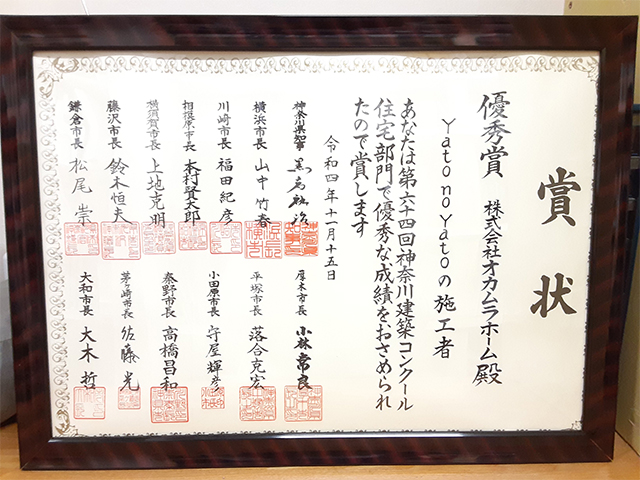 賞状
優秀賞
株式会社オカムラホーム殿
Yato no Yatoの施工者
あなたは第六十四回神奈川建築コンクール
住宅部門で優秀な成績をおさめられ
たので賞します
令和四年十一月十五日
神奈川県知事 黒岩祐治
横浜市長 山中竹春
川崎市長 福田紀彦
相模原市長 本村賢太郎
横須賀市長 上地克明
藤沢市長 鈴木恒夫
鎌倉市長 松尾崇
厚木市長 小林常良
平塚市長 落合克宏
小田原市長 守屋輝彦
秦野市長 高橋昌和
茅ヶ崎市長 佐藤光
大和市長 大木哲